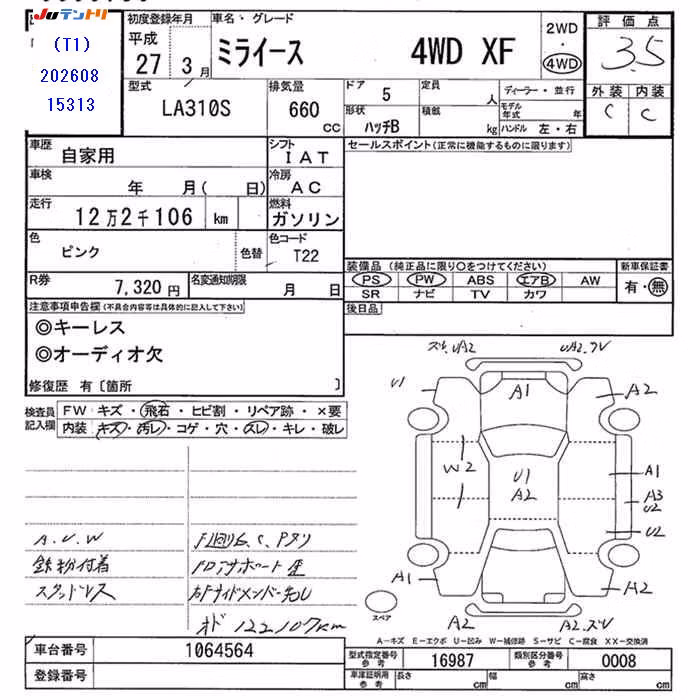 Juテントリ
(T1)
202608
15313
初度登録年月
平成
27年3月
車名・グレード
ミライース 4WD XF
2WD
・
4WD
評価点
3.5
外装 内装
C C
型式
LA310S
排気量
660
cc
ドア
5
形状
ハッチB
定員
人
積載
kg
ディーラー・並行
モデル年式 年
ハンドル 左・右
車歴
自家用
シフト
IAT
車検
年 月( 日)
冷房
AC
走行
12万2千106 km
燃料
ガソリン
色
ピンク
色替
色コード
T22
R券
7,320円
名変通知期限
月 日
セールスポイント(正常に機能するものに限ります)
装備品 (純正品に限り○をつけてください)
新車保証書
PS PW ABS エアB AW
有・無
SR ナビ TV カワ
後日品
注意事項申告欄(不具合内容等は具体的に記入して下さい)
◎キーレス
◎オーディオ欠
修復歴 有〔箇所 〕
検査員
記入欄
FW キズ・飛石・ヒビ割・リペア跡・×要
内装 キズ・汚レ・コゲ・穴・スレ・キレ・破レ
A.U.W
鉄粉付着
スタッドレス
オド 122107km
UA2
U1
A1
A2
W2
U1
A2
A1
A3
U2
U2
A1
A2
A2
スペア
A-キズ E-エクボ U-凹み W-補修跡 S-サビ C-腐食 XX-交換済
車台番号
1064564
登録番号
型式指定番号
参考
16987
類別区分番号
参考
0008
車庫証明用
参考
長さ cm
幅 cm
高さ cm